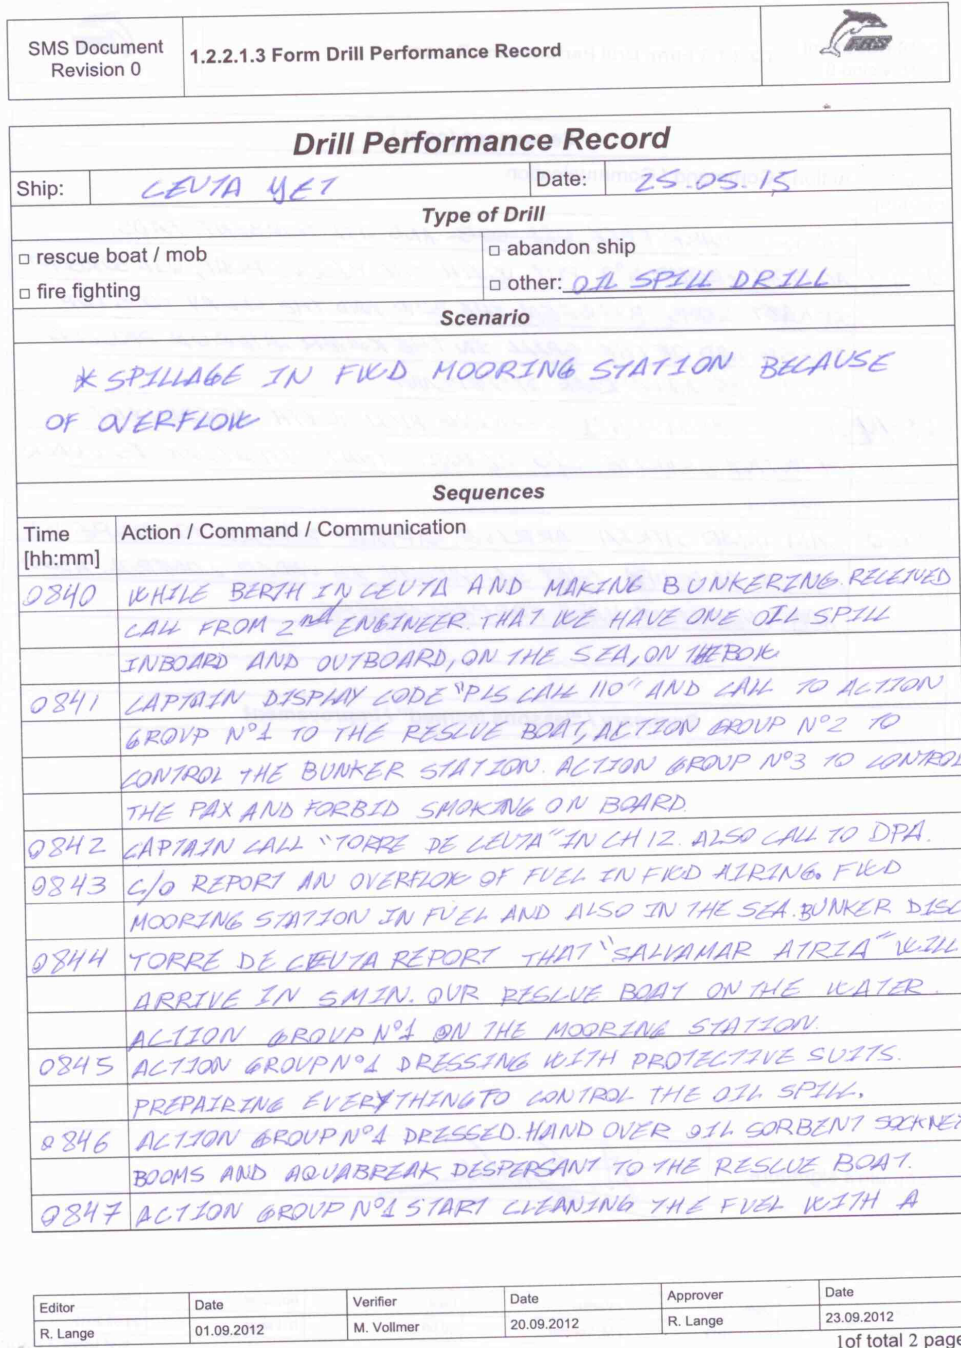 SMS Document
Revision 0
1.2.2.1.3 Form Drill Performance Record
FRS
Drill Performance Record
Ship: CEUTA JET Date: 25.05.15
Type of Drill
□ rescue boat / mob □ abandon ship
□ fire fighting □ other: OIL SPILL DRILL
Scenario
* SPILLAGE IN FWD MOORING STATION BECAUSE
OF OVERFLOW
Sequences
Time
[hh:mm]
Action / Command / Communication
0840 WHILE BERTH IN CEUTA AND MAKING BUNKERING. RECEIVED
CALL FROM 2nd ENGINEER. THAT WE HAVE ONE OIL SPILL
INBOARD AND OUTBOARD, ON THE SEA, ON THE BOW.
0841 CAPTAIN DISPLAY CODE "PLS CALL 110" AND CALL TO ACTION
GROUP Nº1 TO THE RESCUE BOAT, ACTION GROUP Nº2 TO
CONTROL THE BUNKER STATION. ACTION GROUP Nº3 TO CONTROL
THE PAX AND FORBID SMOKING ON BOARD
0842 CAPTAIN CALL "TORRE DE CEUTA" IN CH 12. ALSO CALL TO DPA.
0843 C/O REPORT AN OVERFLOW OF FUEL IN FWD AIRING. FWD
MOORING STATION IN FUEL AND ALSO IN THE SEA. BUNKER DISC
0844 TORRE DE CEUTA REPORT THAT "SALVAMAR ATRIA" WILL
ARRIVE IN 5MIN. OUR RESCUE BOAT ON THE WATER.
ACTION GROUP Nº1 ON THE MOORING STATION.
0845 ACTION GROUP Nº1 DRESSING WITH PROTECTIVE SUITS.
PREPAIRING EVERYTHING TO CONTROL THE OIL SPILL.
0846 ACTION GROUP Nº1 DRESSED. HAND OVER OIL SORBENT SOCKNET
BOOMS AND AQUABREAK DESPERSANT TO THE RESCUE BOAT.
0847 ACTION GROUP Nº1 START CLEANING THE FUEL WITH A
Editor Date Verifier Date Approver Date
R. Lange 01.09.2012 M. Vollmer 20.09.2012 R. Lange 23.09.2012
1of total 2 page